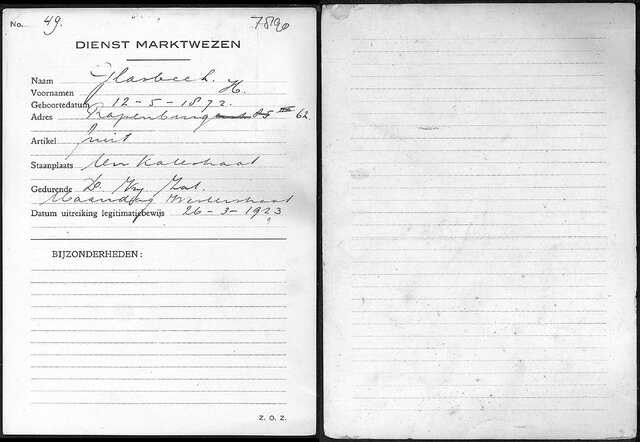 No. 49. 7890
DIENST MARKTWEZEN
Naam Glasbeek.
Voornamen H.
Geboortedatum 12-5-1872.
Adres Rapenburg 62
Artikel fruit
Staanplaats Uilenburgerstraat
Gedurende D. Vrij Zat.
Maandag Westerstraat
Datum uitreiking legitimatiebewijs 26-3-1923
BIJZONDERHEDEN:
Z. O. Z.